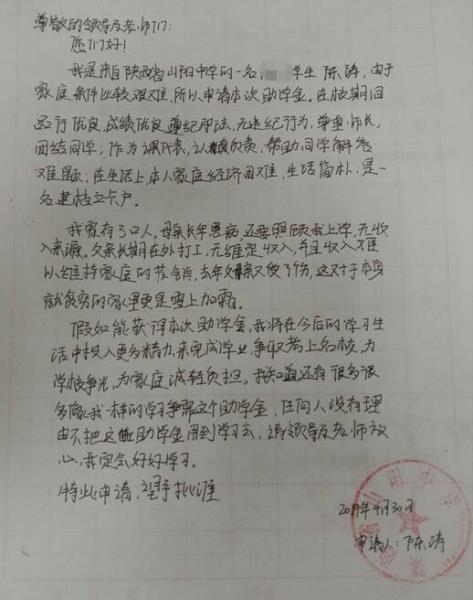 尊敬的领导及老师们:
您们好!
我是来自陕西省山阳中学的一名,学生陈涛,由于
家庭条件比较艰难,所以申请本次助学金,在校期间
品行优良,成绩优良遵纪守法,无违纪行为,尊重师长,
团结同学;作为课代表,认真负责,帮助同学解答
难题;在生活上,本人家庭经济困难,生活简朴,是一
名建档立卡户。
我家有3口人,母亲长年患病,还要照顾我上学,无收
入来源。父亲长期在外打工,无稳定收入,并且收入难
以维持家庭的节销,去年父亲又受了伤,这对于本身
就贫穷的家里更是雪上加霜。
假如能获得本次助学金,我将在今后的学习生
活中投入更多精力,来完成学业,争取考上名校,为
学校争光,为家庭减轻负担。我知道还有很多很
多像我一样的学习争需这个助学金,任何人没有理
由不把这助学金用到学习去,请领导及老师放
心,我定会好好学习。
特此申请,望予批准
2019年4月30日
申请人:陈涛